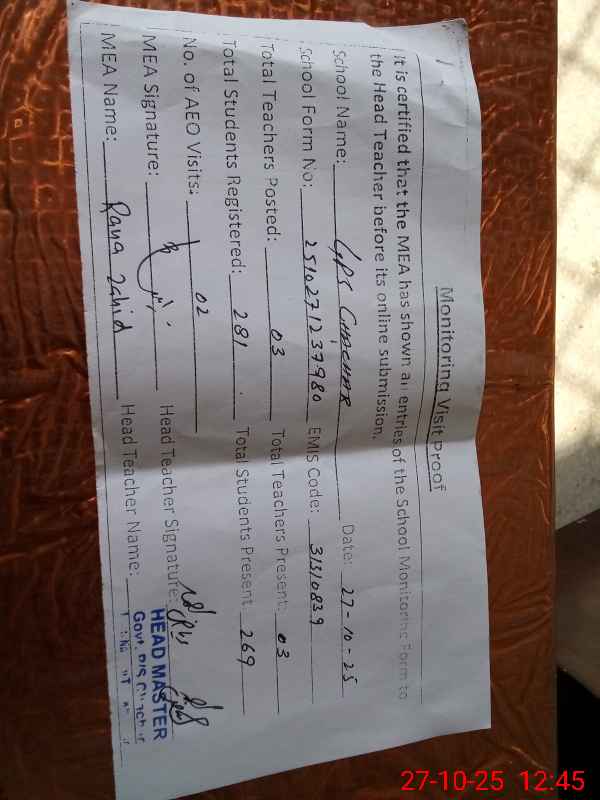 Monitoring Visit Proof
It is certified that the MEA has shown all entries of the School Monitoring Form to
the Head Teacher before its online submission.
School Name: GPS Chachar Date: 27-10-25
School Form No: 2510271237980 EMIS Code: 31310839
Total Teachers Posted: 03 Total Teachers Present: 03
Total Students Registered: 281 Total Students Present: 269
No. of AEO Visits: 02
MEA Signature: Head Teacher Signature:
MEA Name: Rana Zahid Head Teacher Name:
HEAD MASTER
Govt. P/S
27-10-25 12:45